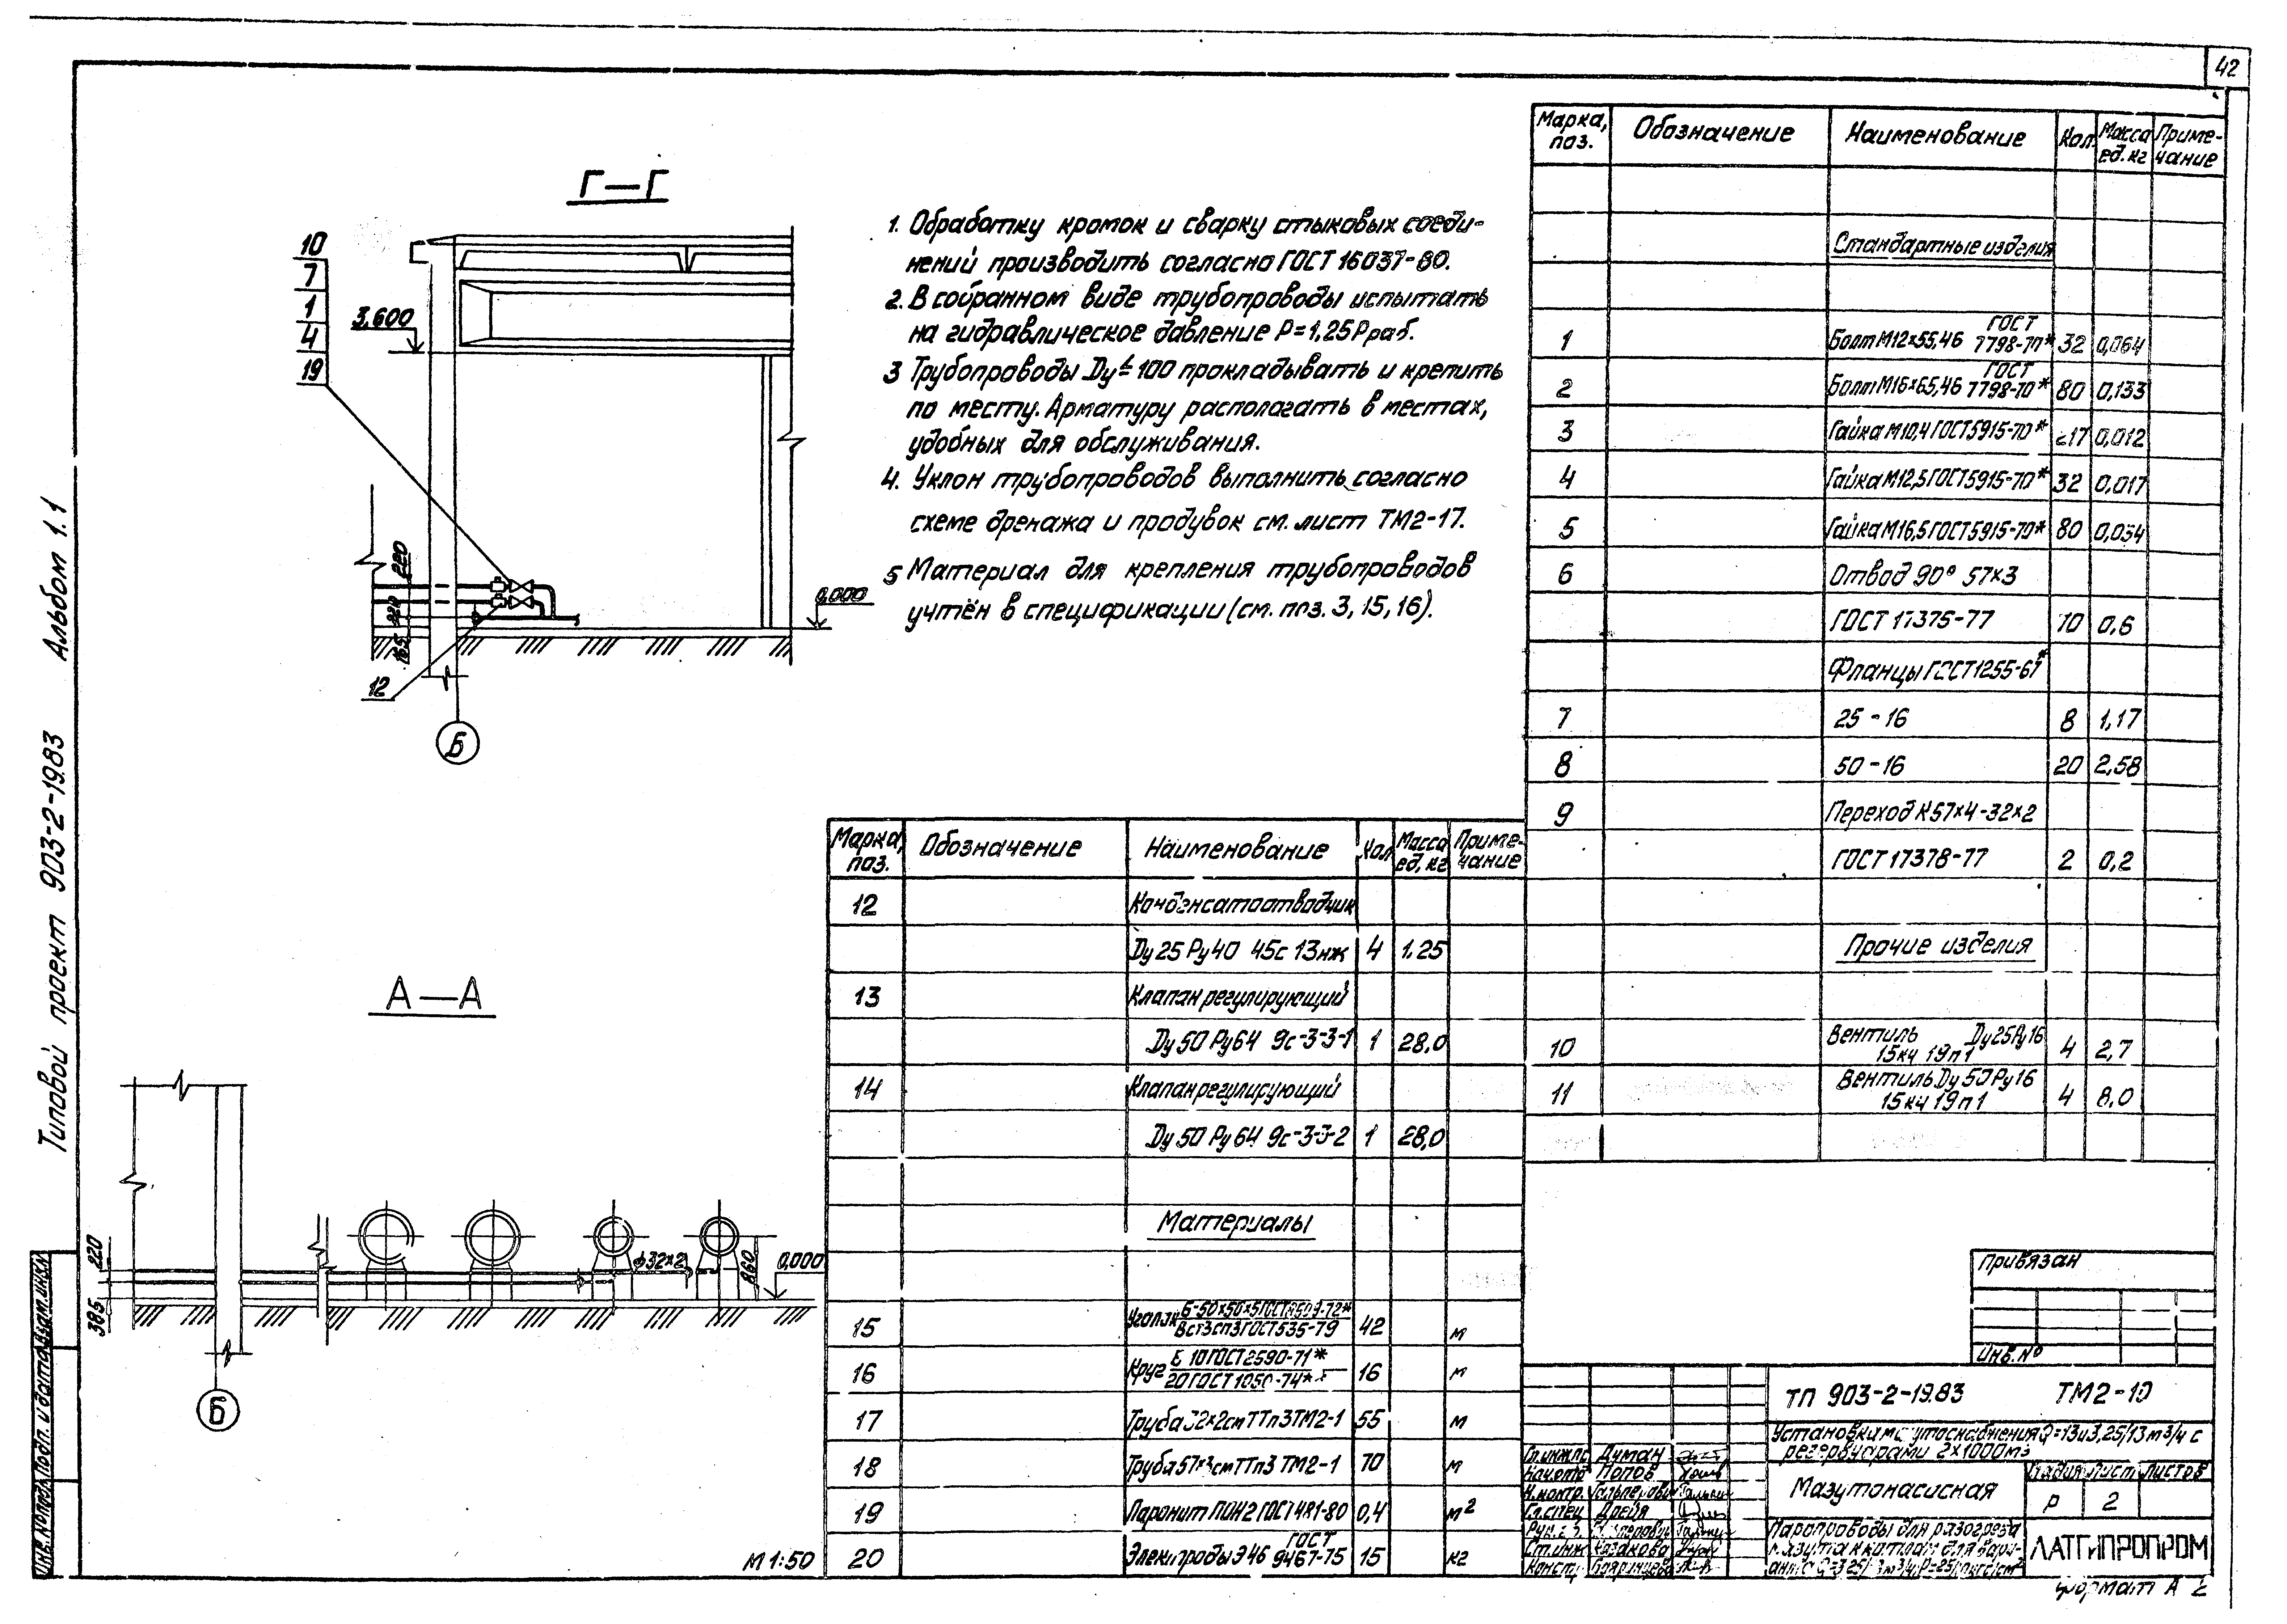 42
Г—Г
10
7
1
4
19
3,600
220
220
165
0,000
12
Б
1. Обработку кромок и сварку стыковых соеди-
нений производить согласно ГОСТ 16037-80.
2. В собранном виде трубопроводы испытать
на гидравлическое давление Р=1,25Рраб.
3 Трубопроводы Ду≤100 прокладывать и крепить
по месту. Арматуру располагать в местах,
удобных для обслуживания.
4. Уклон трубопроводов выполнить согласно
схеме дренажа и продувок см. лист ТМ2-17.
5 Материал для крепления трубопроводов
учтён в спецификации (см. поз. 3, 15, 16).
Марка, поз. Обозначение Наименование Кол. Масса ед. кг Приме-чание
Стандартные изделия
1 Болт М12×55,46 ГОСТ 7798-70* 32 0,064
2 Болт М16×65,46 ГОСТ 7798-70* 80 0,133
3 Гайка М10,4 ГОСТ5915-70* 0,012
4 Гайка М12,5 ГОСТ5915-70* 32 0,017
5 Гайка М16,5 ГОСТ5915-70* 80 0,034
6 Отвод 90° 57×3
ГОСТ 17375-77 10 0,6
Фланцы ГОСТ1255-67*
7 25-16 8 1,17
8 50-16 20 2,58
9 Переход К57×4-32×2
ГОСТ 17378-77 2 0,2
Прочие изделия
10 Вентиль Ду25Ру16 15кч 19п1 4 2,7
11 Вентиль Ду 50 Ру16 15кч 19п1 4 8,0
Марка, поз. Обозначение Наименование Кол Масса ед, кг Приме-чание
12 Конденсатоотводчик
Ду 25 Ру 40 45с 13нж 4 1,25
13 Клапан регулирующий
Ду 50 Ру64 9с-3-3-1 1 28,0
14 Клапан регулирующий
Ду 50 Ру 64 9с-3-3-2 1 28,0
Материалы
15 Уголок Б-50×50×5ГОСТ8509-72* Вст3сп3ГОСТ535-79 42 м
16 Круг 10 ГОСТ2590-71* 20 ГОСТ 1050-74* 16 м
17 Труба 32×2см ТТп3ТМ2-1 55 м
18 Труба 57×3см ТТп3 ТМ2-1 70 м
19 Паронит ПОН2 ГОСТ 481-80 0,4 м²
20 Электроды Э46 ГОСТ 9467-75 15 кг
А—А
220
385
ф32×2
860
0,000
Б
М 1:50
Типовой проект 903-2-19.83 Альбом 1.1
Инв. № подл. Подп. и дата Взам. инв. №
Привязан
Инв. №
ТП 903-2-19.83 ТМ2-10
Установки мазутоснабжения Q=13и3,25/13м³/ч с
резервуарами 2×1000м³
Гл.инж.пр. Думан
Нач.отд Попов
Н.контр. Гальперович
Гл.спец Дрейя
Ст.инж Казакова
Констр.
Мазутонасосная
Стадия Лист Листов
Р 2
Паропроводы для разогрева
мазута
ЛАТГИПРОПРОМ
Формат А 2